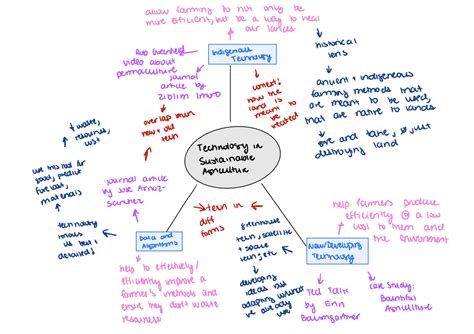 allow farming to not only be
more efficient, but be a way to heal
our lands
Indigenous
Technology
Rob Greenfield
video about
permaculture
journal
article by
historical
lens
ancient + indigenous
farming methods that
are meant to be used,
that are native to lands
give and take, & just
destroying land
context:
how the
land is
meant to
be treated
overlap btwn
new + old
tech
Technology in
Sustainable
Agriculture
↓ waste,
resources,
cost
use this tool for
good, predict
forecast,
materials
journal article
technology
knows
us best +
detailed!
Data and
Algorithms
help to effectively/
efficiently improve a
farmer's methods and
ensure they don't waste
resources
tech in
diff
forms
greenhouse
tech, satellite
+ space
tech, etc
developing
ideas but
adapting what
we already
use
New/Developing
Technology
help farmers produce
efficiently @ a low
cost to them and
the environment
Ted Talk
by Erin
Baumgartner
case study:
Bountiful
Agriculture